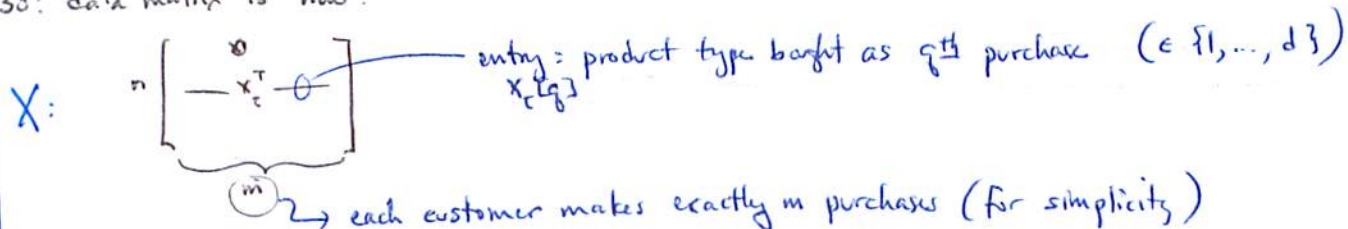 so: data matrix is now:
entry: product type bought as qth purchase (∈ {1,...,d})
X: n — xτᵀ — xτ[q]
m → each customer makes exactly m purchases (for simplicity)